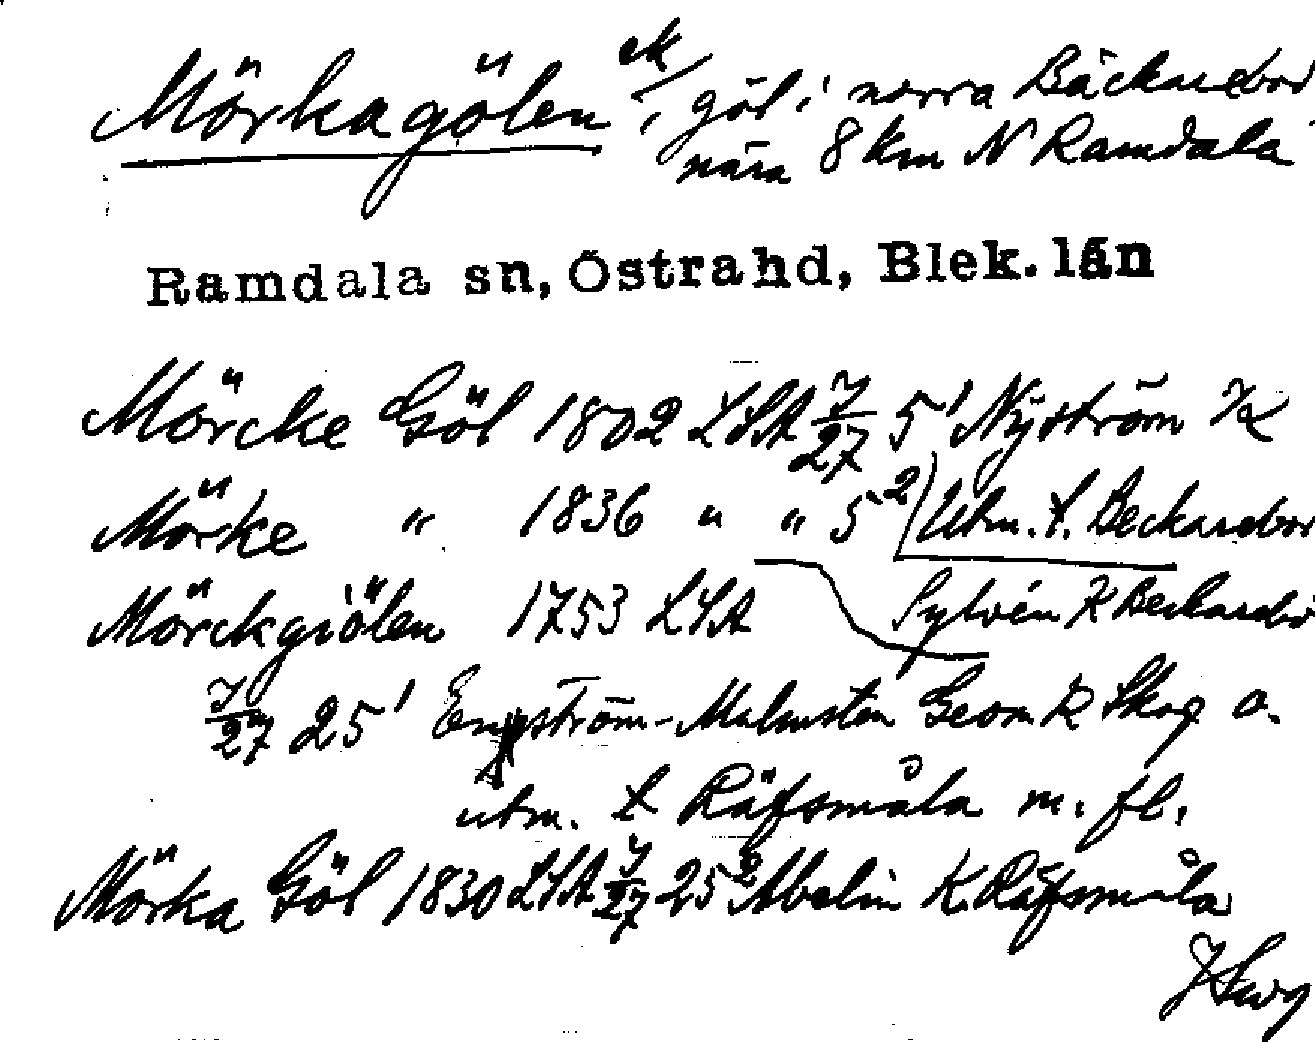 Mörkagölen ek/, göl i norra Bäckarebo
nära 8 km N Ramdala
Ramdala sn, Östra hd, Blek. län
Mörcke Göl 1802 LSA 7/27 5¹ Nyström K
Mörke " 1836 " " 5² Utm. t. Beckarebo
Mörckgiölen 1753 LSA Sylvén K Beckarebo
7/27 25¹ Engström-Malmsten Geom K Skog o.
utm. t Räfsmåla m. fl.
Mörka Göl 1830 LSA 7/27 25² Abelin K. Räfsmåla